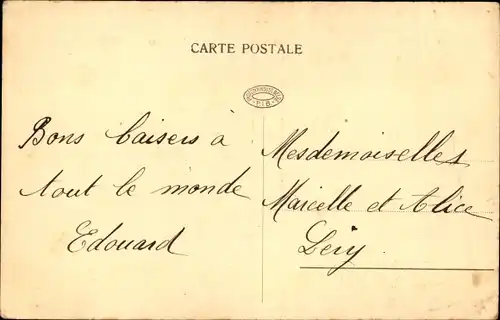 CARTE POSTALE
Bons baisers à
tout le monde
Edouard
Mesdemoiselles
Marcelle et Alice
Léry